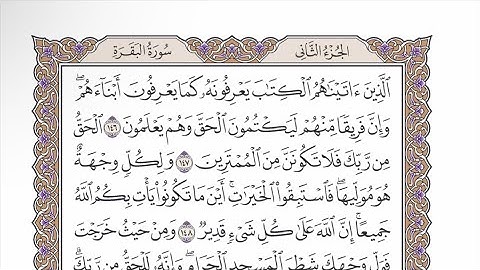 الجُزْءُ الثَّانِى
سُورَةُ البَقَرَةِ
الَّذِينَ ءَاتَيْنَٰهُمُ الْكِتَٰبَ يَعْرِفُونَهُۥ كَمَا يَعْرِفُونَ أَبْنَآءَهُمْۖ
وَإِنَّ فَرِيقًا مِّنْهُمْ لَيَكْتُمُونَ الْحَقَّ وَهُمْ يَعْلَمُونَ ١٤٦ الْحَقُّ
مِن رَّبِّكَ فَلَا تَكُونَنَّ مِنَ الْمُمْتَرِينَ ١٤٧ وَلِكُلٍّ وِجْهَةٌ
هُوَ مُوَلِّيهَاۖ فَاسْتَبِقُوا۟ الْخَيْرَٰتِۚ أَيْنَ مَا تَكُونُوا۟ يَأْتِ بِكُمُ اللَّهُ
جَمِيعًاۚ إِنَّ اللَّهَ عَلَىٰ كُلِّ شَىْءٍ قَدِيرٌ ١٤٨ وَمِنْ حَيْثُ خَرَجْتَ
فَوَلِّ وَجْهَكَ شَطْرَ الْمَسْجِدِ الْحَرَامِۖ وَإِنَّهُۥ لَلْحَقُّ مِن رَّبِّكَۗ